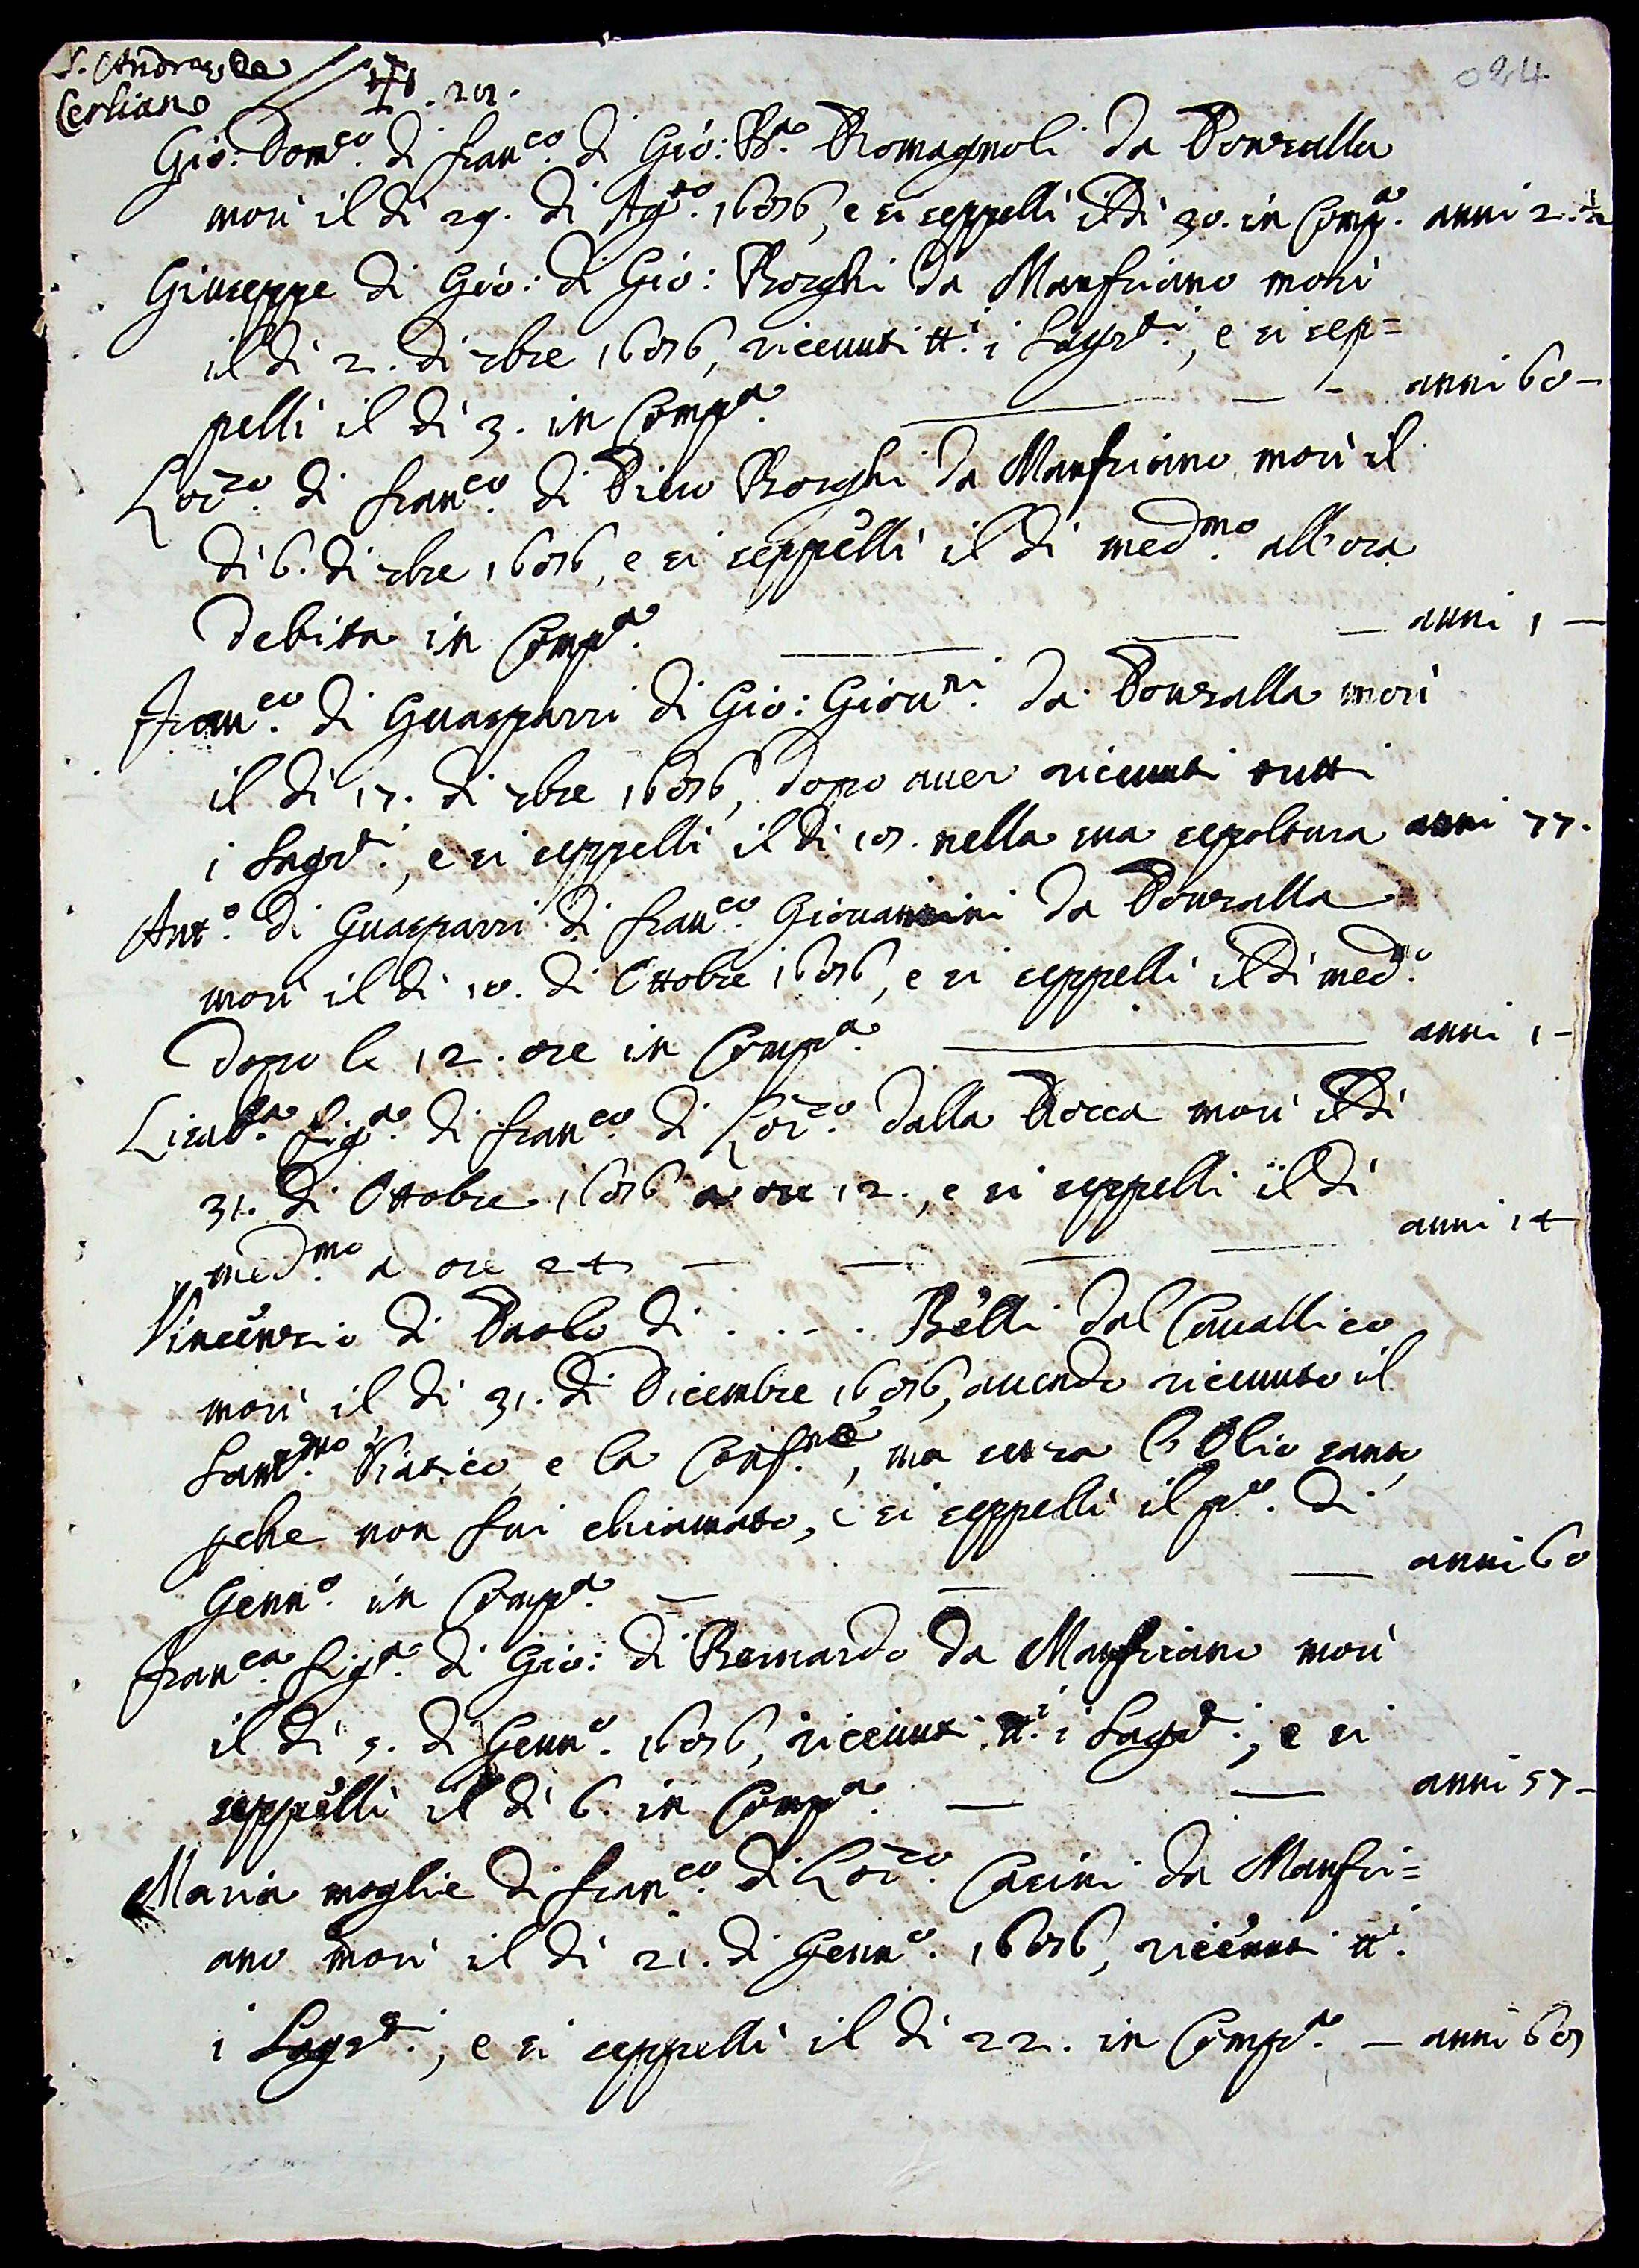 S. Andrea, da
Cerliano
22.
024
Gio: Dom.co di Fran.co di Gio: B.a Romagnoli da Ponzalla
morì il dì 29. di Ag.to 1686, e si seppellì il dì 30. in Comp.a anni 2. ½
Giuseppe di Gio: di Gio: Borghi da Manfriano morì
il dì 2. di 7bre 1686, riceuuti tt.i i Sagr.ti, e si sep=
pellì il dì 3. in Comp.a — anni 60 —
Lor.zo di Fran.co di Piero Borghi da Manfriano morì il
dì 6. di 7bre 1686, e si seppellì il dì med.mo all'ora
debita in Comp.a — anni 1 —
Fran.co di Guasparri di Gio: Giou.ni da Ponzalla morì
il dì 17. di 7bre 1686, dopo auer riceuuti tutti
i Sagr.ti, e si seppellì il dì 18. nella sua sepoltura anni 77.
Ant.o di Guasparri di Fran.co Giouannini da Ponzalla
morì il dì 10. di Ottobre 1686, e si seppellì il dì med.o
dopo le 12. ore in Comp.a — anni 1 —
Lisab.a fig.a di Fran.co di Lor.zo dalla Rocca morì il dì
31. di Ottobre 1686 a ore 12., e si seppellì il dì
med.mo a ore 24 — anni 14
Vincenzio di Paolo di . . . . Belli dal Cauallico
morì il dì 31. di Dicembre 1686, auendo riceuuto il
Sant.mo Viatico, e la Conf.ne, ma senza l'Olio santo,
pche non fui chiamato, e si seppellì il p.o di
Genn.o in Comp.a — anni 60
Fran.ca fig.a di Gio: di Bernardo da Manfriano morì
il dì 5. di Genn.o 1686, riceuuti tt.i i Sagr.ti, e si
seppellì il dì 6. in Comp.a — anni 57 —
Maria moglie di Fran.co di Lor.zo Casini da Manfri=
ano morì il dì 21. di Genn.o 1686, riceuuti tt.i
i Sagr.ti, e si seppellì il dì 22. in Comp.a — anni 68